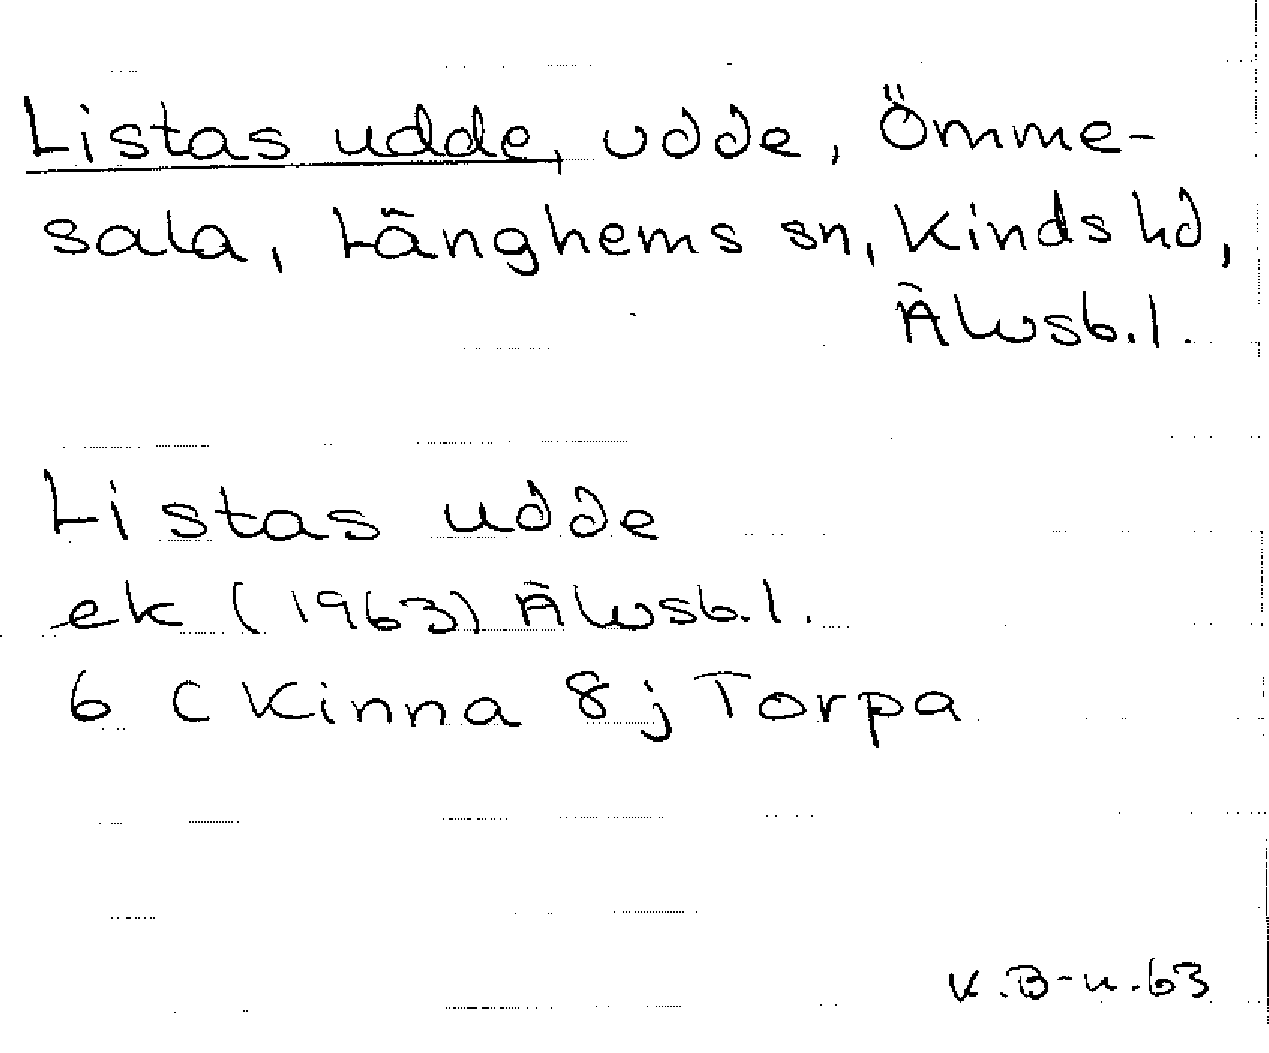 Listas udde, udde, Ömme-
sala, Länghems sn, Kinds hd,
Älvsb. l.
Listas udde
ek (1963) Älvsb. l.
6 C Kinna 8 j Torpa
K. B-n. 63